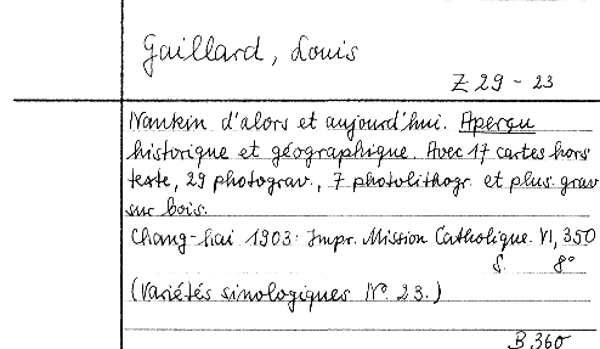 Gaillard, Louis
Z 29 - 23
Nankin d'alors et aujourd'hui. Aperçu
historique et géographique. Avec 17 cartes hors
texte, 29 photograv., 7 photolithogr. et plus. grav
sur bois.
Chang-hai 1903: Impr. Mission Catholique. VI, 350
S. 8°
(Variétés sinologiques N° 23.)
B 360